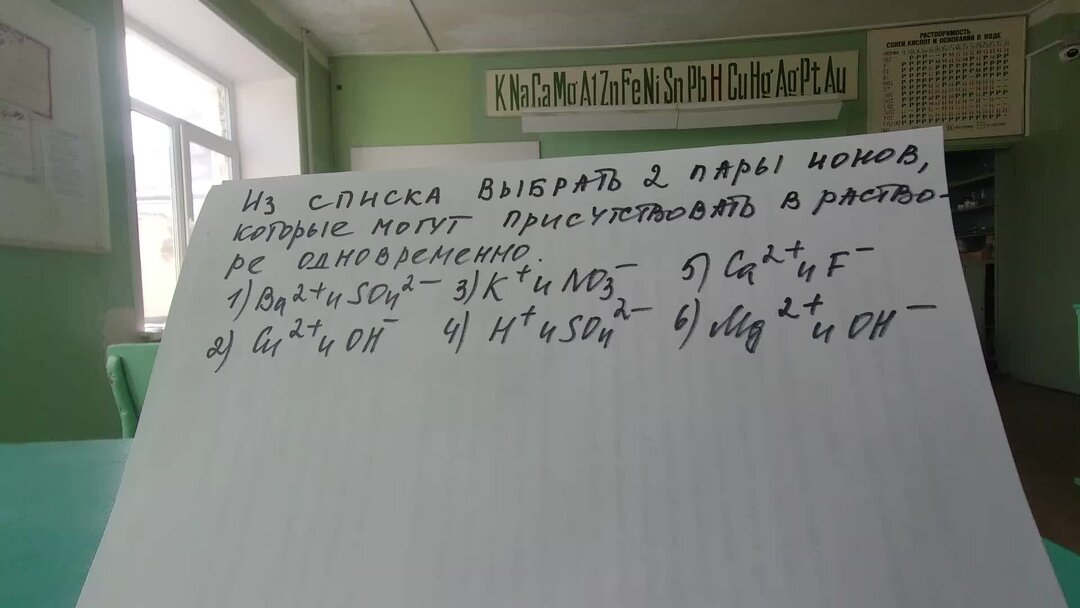 K Na Ca Mg Al Zn Fe Ni Sn Pb H Cu Hg Ag Pt Au
РАСТВОРИМОСТЬ
СОЛЕЙ КИСЛОТ И ОСНОВАНИЙ В ВОДЕ
Из СПИСКА ВЫБРАТЬ 2 ПАРЫ ИОНОВ,
которые могут присутствовать в раство-
ре одновременно.
1) Ba²⁺ и SO₄²⁻ 3) K⁺ и NO₃⁻ 5) Ca²⁺ и F⁻
2) Cu²⁺ и OH⁻ 4) H⁺ и SO₄²⁻ 6) Mg²⁺ и OH⁻